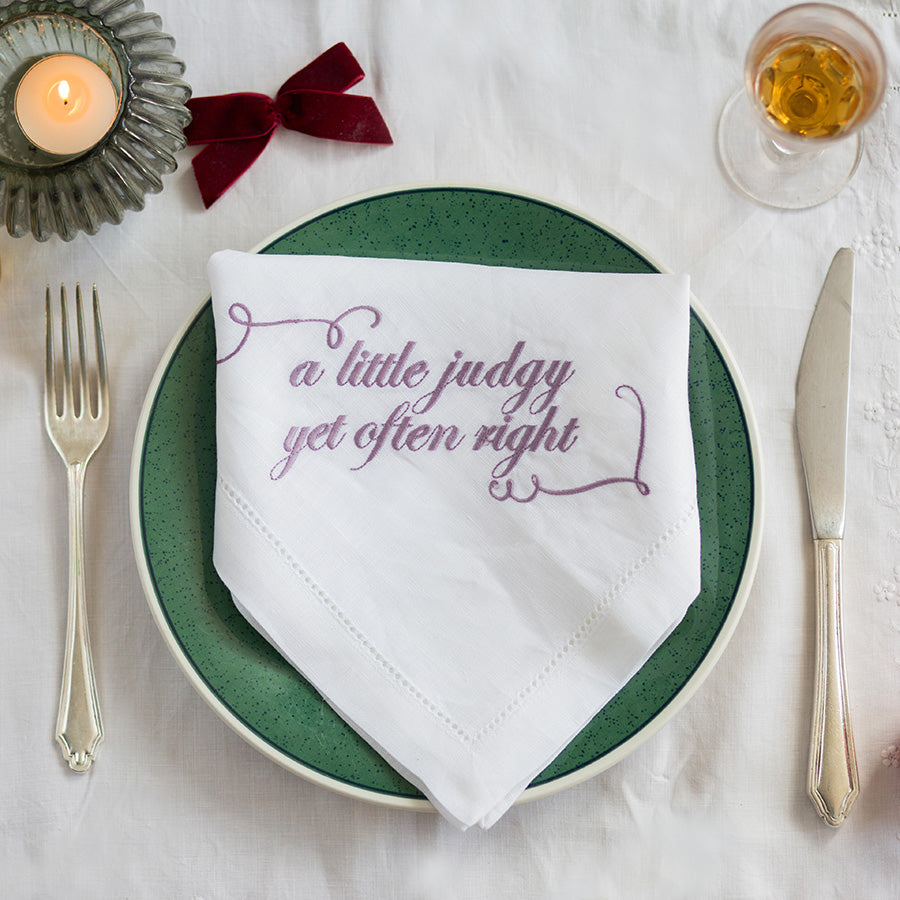 a little judgy
yet often right